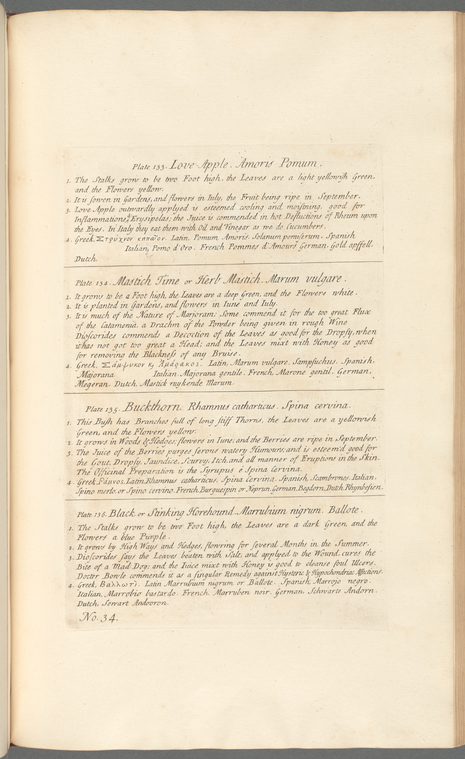 Plate 133. Love Apple. Amoris Pomum.
1. The Stalks grow to be two Foot high, the Leaves are a light yellowish Green,
and the Flowers yellow.
2. It is sowen in Gardens, and flowers in Iuly, the Fruit being ripe in September.
3. Love Apple outwardly applyed is esteemed cooling and moistning, good for
Inflammations, & Erysipelas; the Juice is commended in hot Defluctions of Rheum upon
the Eyes. In Italy they eat them with Oil and Vinegar as we do Cucumbers.
4. Greek, Latin, Pomum Amoris, Solanum pomiferum. Spanish,
Italian, Pomo d'Oro. French, Pommes d'Amours. German, Gold apffell.
Dutch,
Plate 134. Mastich Time or Herb Mastich. Marum vulgare.
1. It grows to be a Foot high, the Leaves are a deep Green, and the Flowers white.
2. It is planted in Gardens, and flowers in Iune and Iuly.
3. It is much of the Nature of Marjoram; Some commend it for the too great Flux
of the Catamenia, a Drachm of the Powder being given in rough Wine
Dioscorides commends a Decoction of the Leaves as good for the Dropsy, when
it has not got too great a Head; and the Leaves mixt with Honey as good
for removing the Blackness of any Bruise.
4. Greek, Latin, Marum vulgare, Sampsuchus. Spanish,
Majorana Italian, Majorana gentile. French, Marone gentil. German,
Megeran. Dutch, Mastick ruykende Marum.
Plate 135. Buckthorn. Rhamnus catharticus. Spina cervina.
1. This Bush has Branches full of long stiff Thorns, the Leaves are a yellowish
Green, and the Flowers yellow.
2. It grows in Woods & Hedges; flowers in Iune; and the Berries are ripe in September.
3. The Juice of the Berries purges serous watery Humours, and is esteem'd good for
the Gout, Dropsy, Jaundice, Scurvy, Itch, and all manner of Eruptions in the Skin.
The Officinal Preparation is the Syrupus è Spina Cervina.
4. Greek, Ράμνος. Latin, Rhamnus catharticus, Spina Cervina. Spanish, Scambrones. Italian,
Spino merlo, or Spino cervino. French, Burguespin or Neprun. German, Begdorn. Dutch, Rhynbesien.
Plate 136. Black or Stinking Horehound. Marrubium nigrum. Ballote.
1. The Stalks grow to be two Foot high, the Leaves are a dark Green, and the
Flowers a blue Purple.
2. It grows by High Ways and Hedges, flowring for several Months in the Summer.
3. Dioscorides says the Leaves beaten with Salt, and applyed to the Wound, cures the
Bite of a Mad Dog; and the Juice mixt with Honey is good to cleanse foul Ulcers.
Docter Bowle commends it as a singular Remedy against Hysteric & Hypochondriac Affections.
4. Greek, Βαλλωτὴ. Latin, Marrubium nigrum or Ballote. Spanish, Marrojo negro.
Italian, Marrobio bastardo. French, Marruben noir. German, Schwarts Andorn.
Dutch, Sewart Andooron.
No. 34.